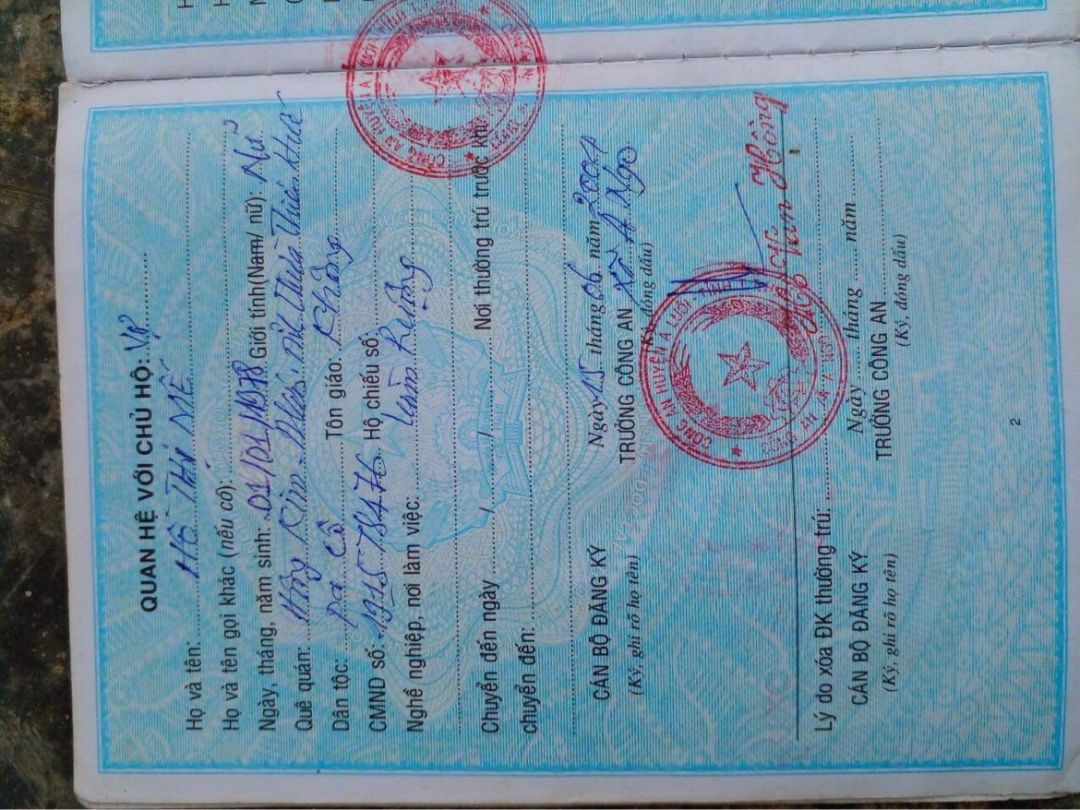 QUAN HỆ VỚI CHỦ HỘ: Vợ
Họ và tên: Hồ Thị MẾ
Họ và tên gọi khác (nếu có):
Ngày, tháng, năm sinh: 01/01/1978 Giới tính(Nam/ nữ): Nữ
Quê quán: Hồng Kim, A Lưới, Thừa Thiên Huế
Dân tộc: Pa Cô Tôn giáo: Không
CMND số: 191578476 Hộ chiếu số:
Nghề nghiệp, nơi làm việc: Làm Ruộng
Chuyển đến ngày / / Nơi thường trú trước khi
chuyển đến:
Ngày 15 tháng 06 năm 2004
CÁN BỘ ĐĂNG KÝ TRƯỞNG CÔNG AN Xã A Ngo
(Ký, ghi rõ họ tên) (Ký, đóng dấu)
CÔNG AN HUYỆN A LƯỚI
Hồ Văn Hồng
Lý do xóa ĐK thường trú:
Ngày tháng năm
CÁN BỘ ĐĂNG KÝ TRƯỞNG CÔNG AN
(Ký, ghi rõ họ tên) (Ký, đóng dấu)
2